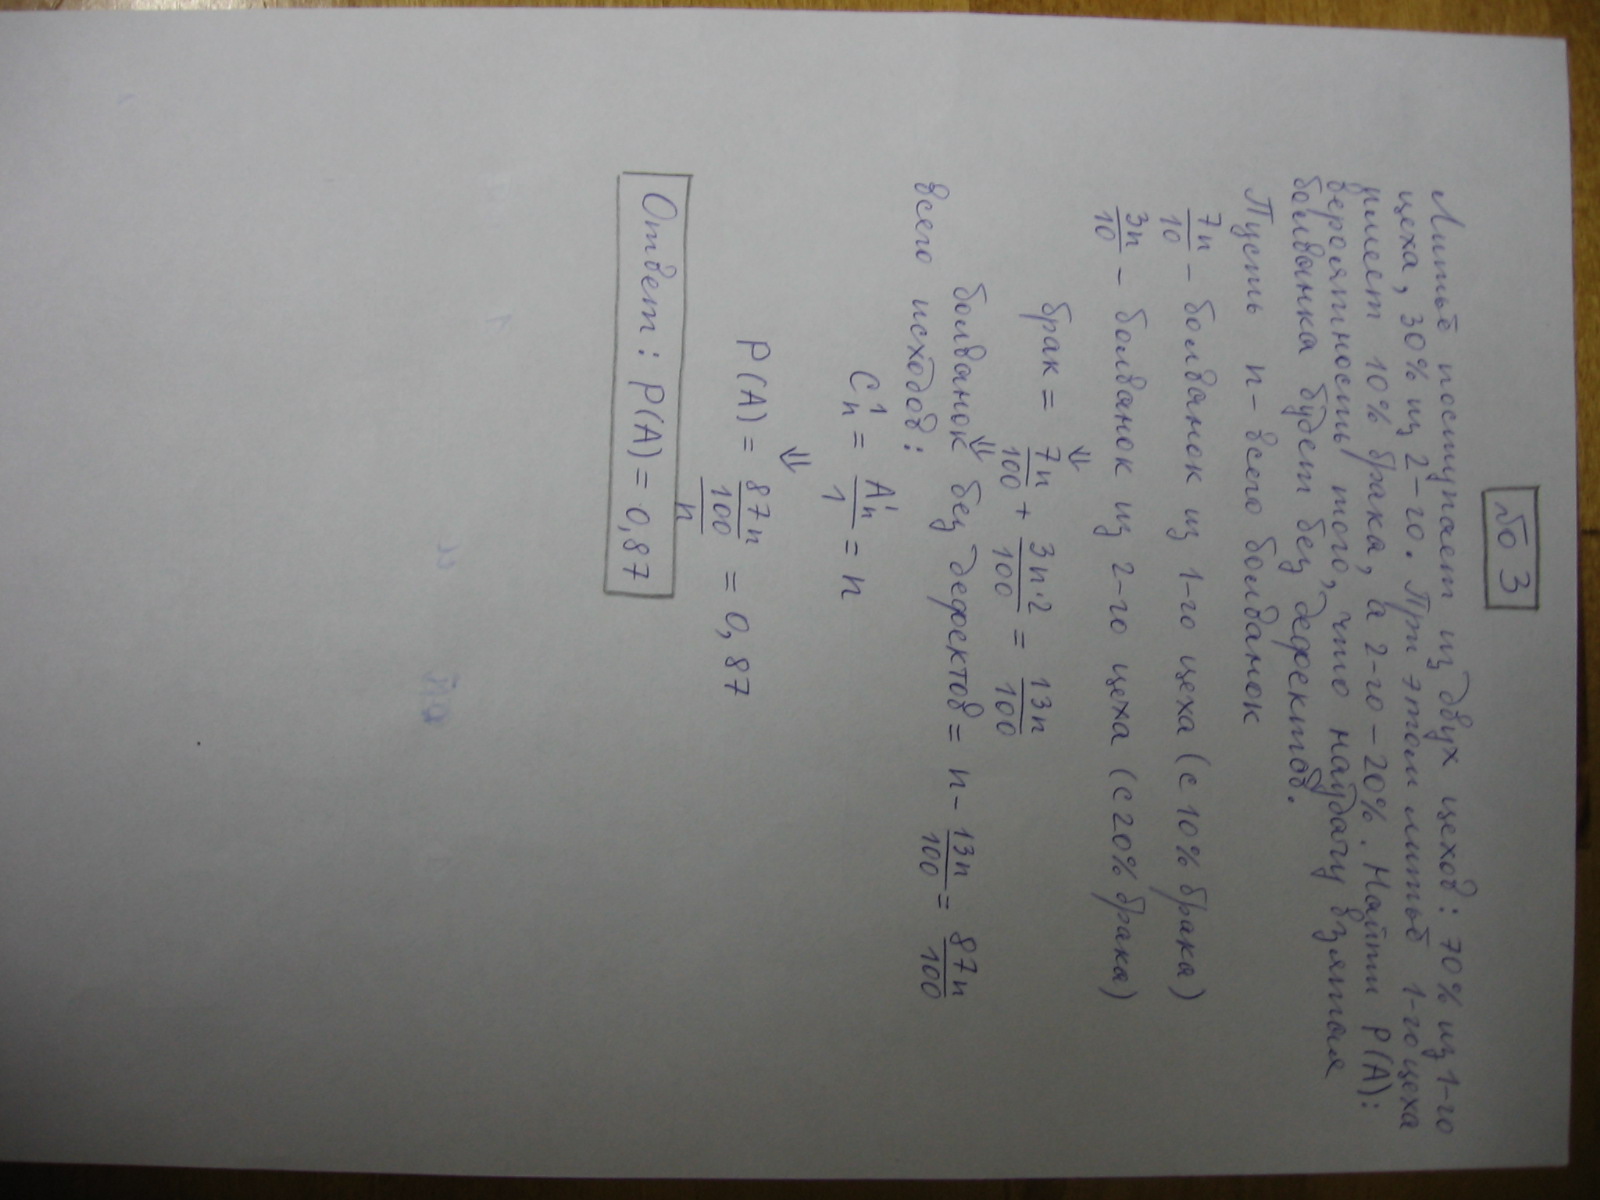 № 3
Литьё поступает из двух цехов: 70% из 1-го
цеха, 30% из 2-го. При этом литьё 1-го цеха
имеет 10% брака, а 2-го - 20%. Найти P(A):
вероятность того, что наудачу взятая
болванка будет без дефектов.
Пусть n - всего болванок
7n/10 - болванок из 1-го цеха (с 10% брака)
3n/10 - болванок из 2-го цеха (с 20% брака)
⇓
брак = 7n/100 + 3n·2/100 = 13n/100
⇓
болванок без дефектов = n - 13n/100 = 87n/100
всего исходов:
C¹ₙ = A¹ₙ/1 = n
⇓
P(A) = 87n/100/n = 0,87
Ответ: P(A) = 0,87